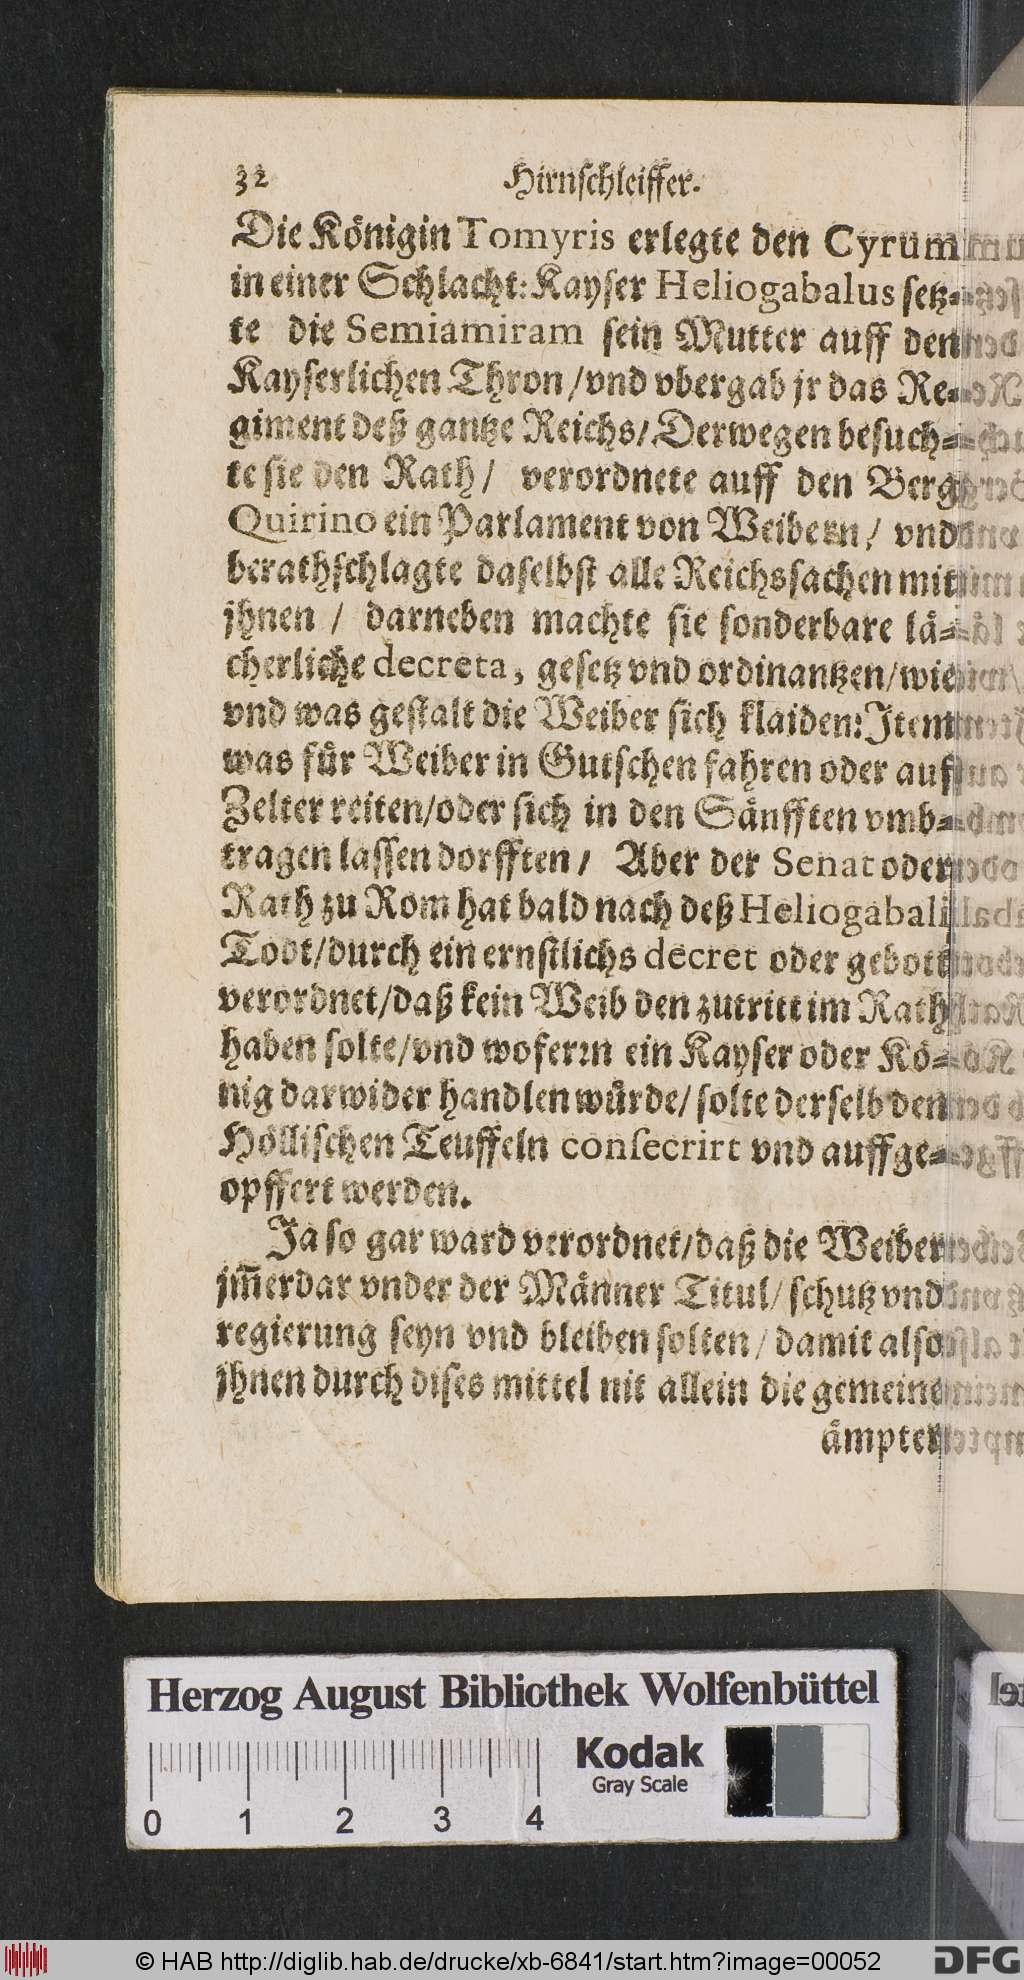 32 Hirnschleiffer.
Die Königin Tomyris erlegte den Cyrum
in einer Schlacht: Kayser Heliogabalus setz-
te die Semiamiram sein Mutter auff den
Kayserlichen Thron / vnd vbergab jr das Re-
giment deß gantze Reichs / Derwegen besuch-
te sie den Rath / verordnete auff den Berg
Quirino ein Parlament von Weibern / vnd
berathschlagte daselbst alle Reichssachen mit
jhnen / darneben machte sie sonderbare lä-
cherliche decreta, gesetz vnd ordinantzen / wie
vnd was gestalt die Weiber sich klaiden: Item
was für Weiber in Gutschen fahren oder auff
Zelter reiten / oder sich in den Sänfften vmb-
tragen lassen dorfften / Aber der Senat oder
Rath zu Rom hat bald nach deß Heliogabali
Todt / durch ein ernstlichs decret oder gebott
verordnet / daß kein Weib den zutritt im Rath
haben solte / vnd woferrn ein Kayser oder Kö-
nig darwider handlen würde / solte derselb den
Höllischen Teuffeln consecrirt vnd auffge-
opffert werden.
Ja so gar ward verordnet / daß die Weiber
jm̄erdar vnder der Männer Titul / schutz vnd
regierung seyn vnd bleiben solten / damit also
jhnen durch dises mittel nit allein die gemeine
ämpter
Herzog August Bibliothek Wolfenbüttel
Kodak
Gray Scale
0 1 2 3 4
© HAB http://diglib.hab.de/drucke/xb-6841/start.htm?image=00052
DFG